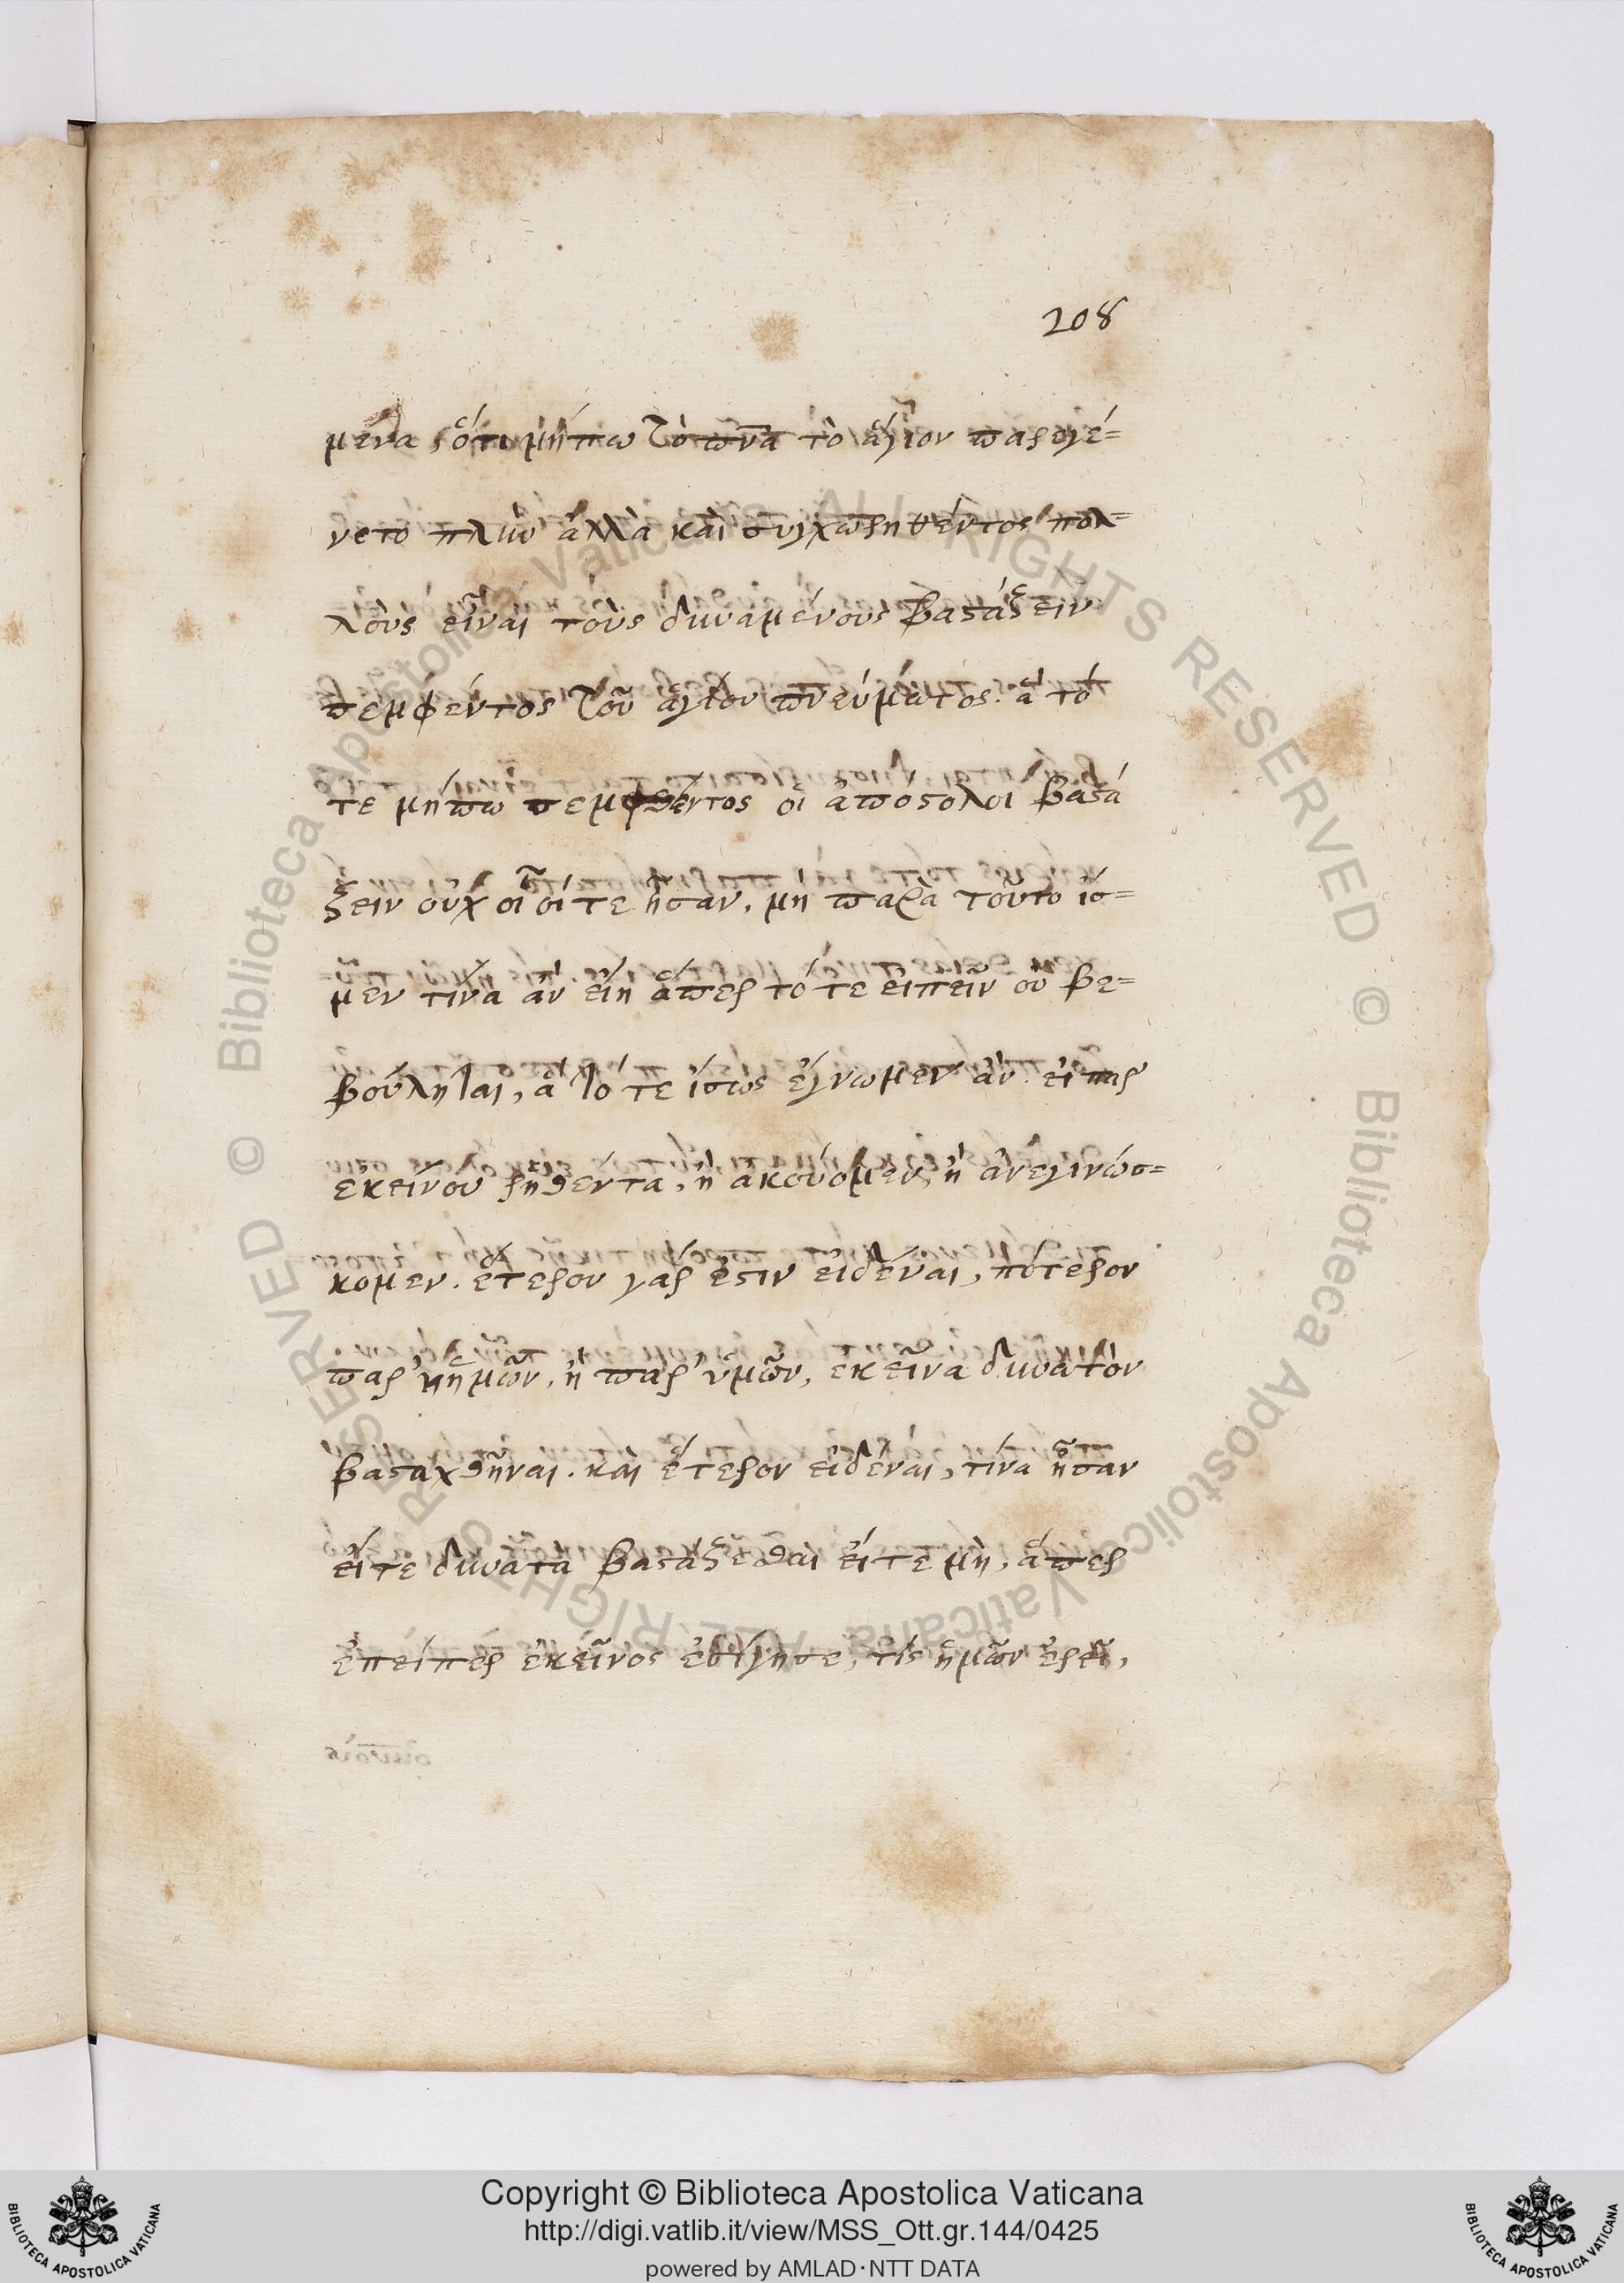 208
μενα, ὅτι μήπω τὸ πνα τὸ ἅγιον παρεγέ=
νετο πλὴν ἀλλὰ καὶ συγχωρηθέντος πολ=
λοὺς εἶναι τοὺς δυναμένους βαστάξειν
πεμφέντος τοῦ ἁγίου πνεύματος. ἃ τό
τε μήπω πεμφθέντος οἱ ἀπόστολοι βαστά
ξειν οὐχ οἷοί τε ἦσαν, μὴ παρὰ τοῦτο ἴσ=
μεν τίνα ἂν εἴη ἅπερ τότε εἰπεῖν οὐ βε=
βούληται, ἃ τότε ἴσως ἔγνωμεν ἄν. εἰ παρ'
ἐκείνου ῥηθέντα, ἢ ἀκούομεν, ἢ ἀνεγινώσ=
κομεν. ἕτερον γάρ ἐστιν εἰδέναι, πότερον
παρ' ἡμῶν, ἢ παρ' ὑμῶν, ἐκεῖνα δυνατὸν
βασταχθῆναι. καὶ ἕτερον εἰδέναι, τίνα ἦσαν
εἴτε δυνατὰ βαστάξεσθαι εἴτε μὴ, ἅπερ
ἐπείπερ ἐκεῖνος ἐσίγησε, τίς ἡμῶν ἐρεῖ,
Copyright © Biblioteca Apostolica Vaticana
http://digi.vatlib.it/view/MSS_Ott.gr.144/0425
powered by AMLAD·NTT DATA
BIBLIOTECA APOSTOLICA VATICANA
BIBLIOTECA APOSTOLICA VATICANA
© Biblioteca Apostolica Vaticana ALL RIGHTS RESERVED © Biblioteca Apostolica Vaticana ALL RIGHTS RESERVED